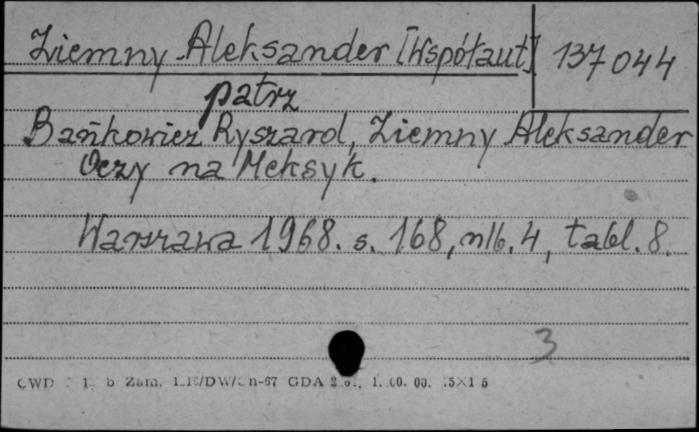 Ziemny Aleksander [Współaut] 137044
patrz
Bańkowicz Ryszard, Ziemny Aleksander
Oczy na Meksyk.
Warszawa 1968. s. 168, nlb. 4, tabl. 8.
3
CWD b Zam. GDA